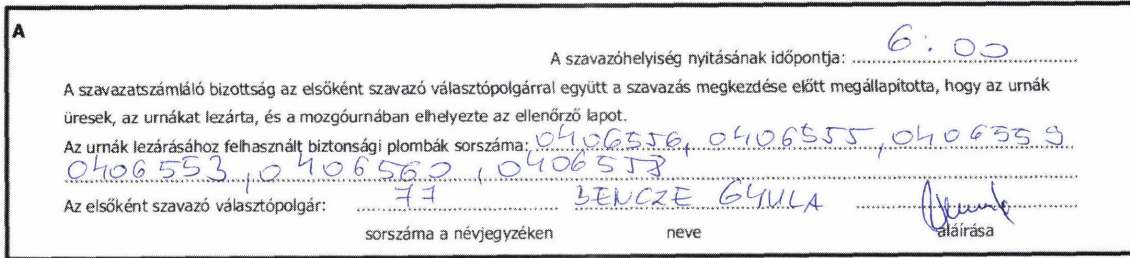 A
A szavazóhelyiség nyitásának időpontja: 6:00
A szavazatszámláló bizottság az elsőként szavazó választópolgárral együtt a szavazás megkezdése előtt megállapította, hogy az urnák
üresek, az urnákat lezárta, és a mozgóurnában elhelyezte az ellenőrző lapot.
Az urnák lezárásához felhasznált biztonsági plombák sorszáma: 0406556, 0406555, 0406559
0406553, 0406560, 0406558
Az elsőként szavazó választópolgár: 77 BENCZE GYULA
sorszáma a névjegyzéken neve aláírása